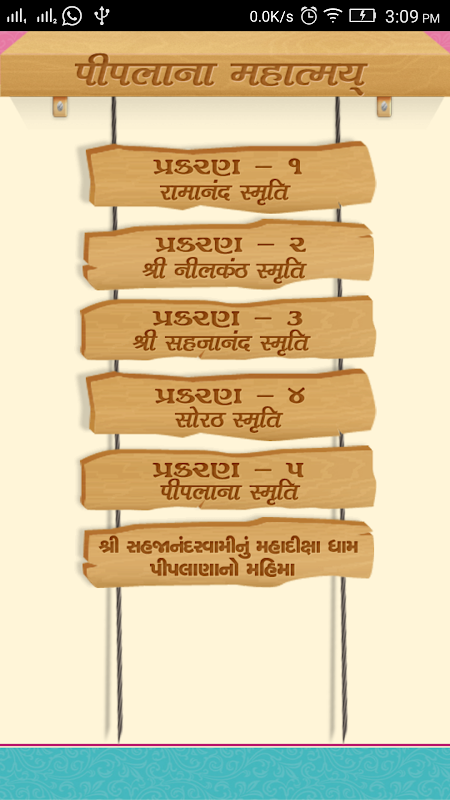 0.0K/s 3:09 PM
पीपलाना महात्मय्
પ્રકરણ – ૧
રામાનંદ સ્મૃતિ
પ્રકરણ – ૨
શ્રી નીલકંઠ સ્મૃતિ
પ્રકરણ – ૩
શ્રી સહજાનંદ સ્મૃતિ
પ્રકરણ – ૪
સોરઠ સ્મૃતિ
પ્રકરણ – ૫
પીપલાના સ્મૃતિ
શ્રી સહજાનંદસ્વામીનું મહાદીક્ષા ધામ
પીપલાણાનો મહિમા